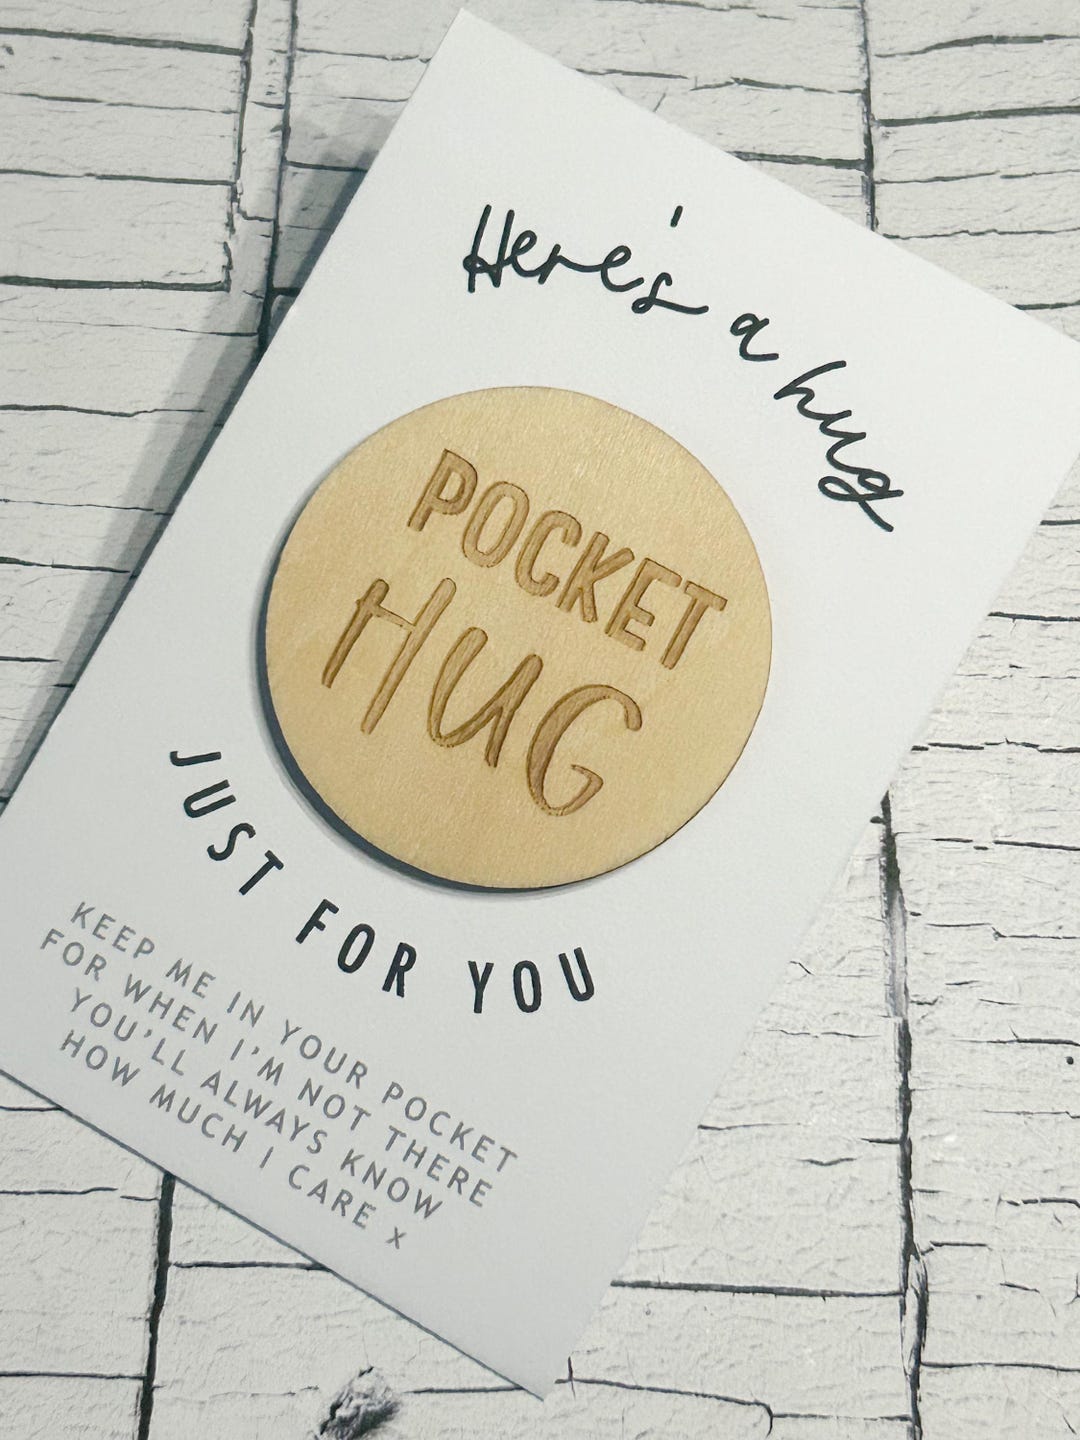 Here's a hug
POCKET
HUG
JUST FOR YOU
KEEP ME IN YOUR POCKET
FOR WHEN I'M NOT THERE
YOU'LL ALWAYS KNOW
HOW MUCH I CARE x